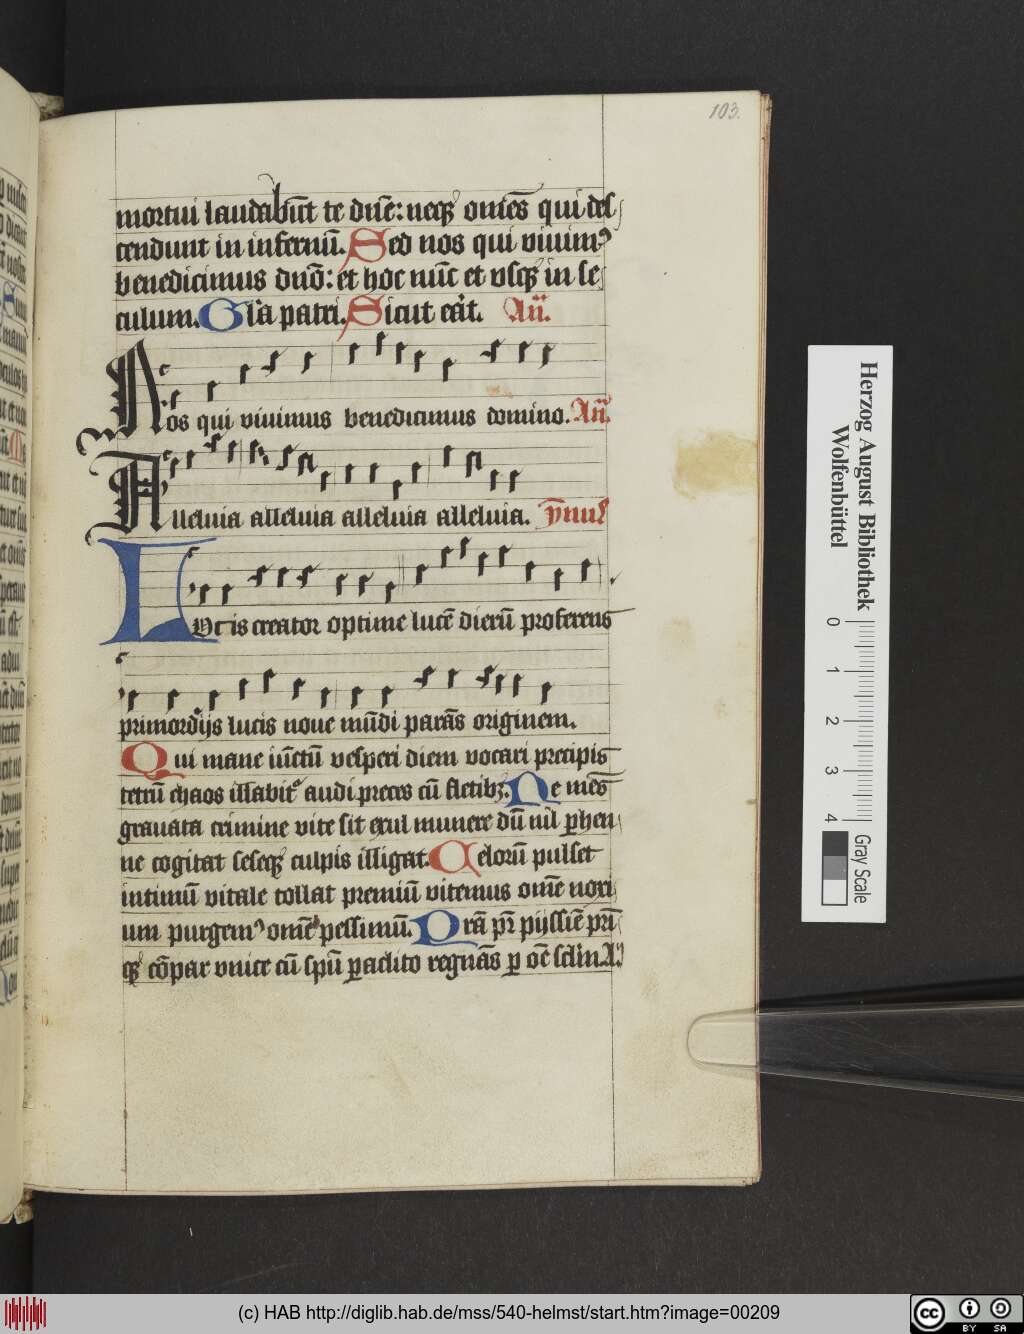 103.
mortui laudabūt te dn̄e: neqꝫ om̄es qui des
cendunt in infernū. Sed nos qui viuimꝰ
benedicimus dn̄o: et hoc nūc et vsqꝫ in se
culum. Gl'a patri. Sicut erat. Añ.
Nos qui viuimus benedicimus domino. Añ.
Alleluia alleluia alleluia alleluia. ymnꝰ
LVcis creator optime lucē dierū proferens
primordijs lucis noue mūdi parās originem.
Qui mane iūctū vesperi diem vocari precipis
tetrū chaos illabit᷑ audi preces cū fletibꝫ. Ne mēs
grauata crimine vite sit exul munere dū nil ꝑhen
ne cogitat seseqꝫ culpis illigat. Celorū pulset
intimū vitale tollat premiū vitemus om̄e noxi
um purgemꝰ om̄e pessimū. Pr̄a pr̄ pijssīe pr̄i
qꝫ cōpar vnice cū spū ꝑaclito regnās ꝑ oē sclm A.
Herzog August Bibliothek
Wolfenbüttel
0 1 2 3 4
Gray Scale
(c) HAB http://diglib.hab.de/mss/540-helmst/start.htm?image=00209
cc BY SA